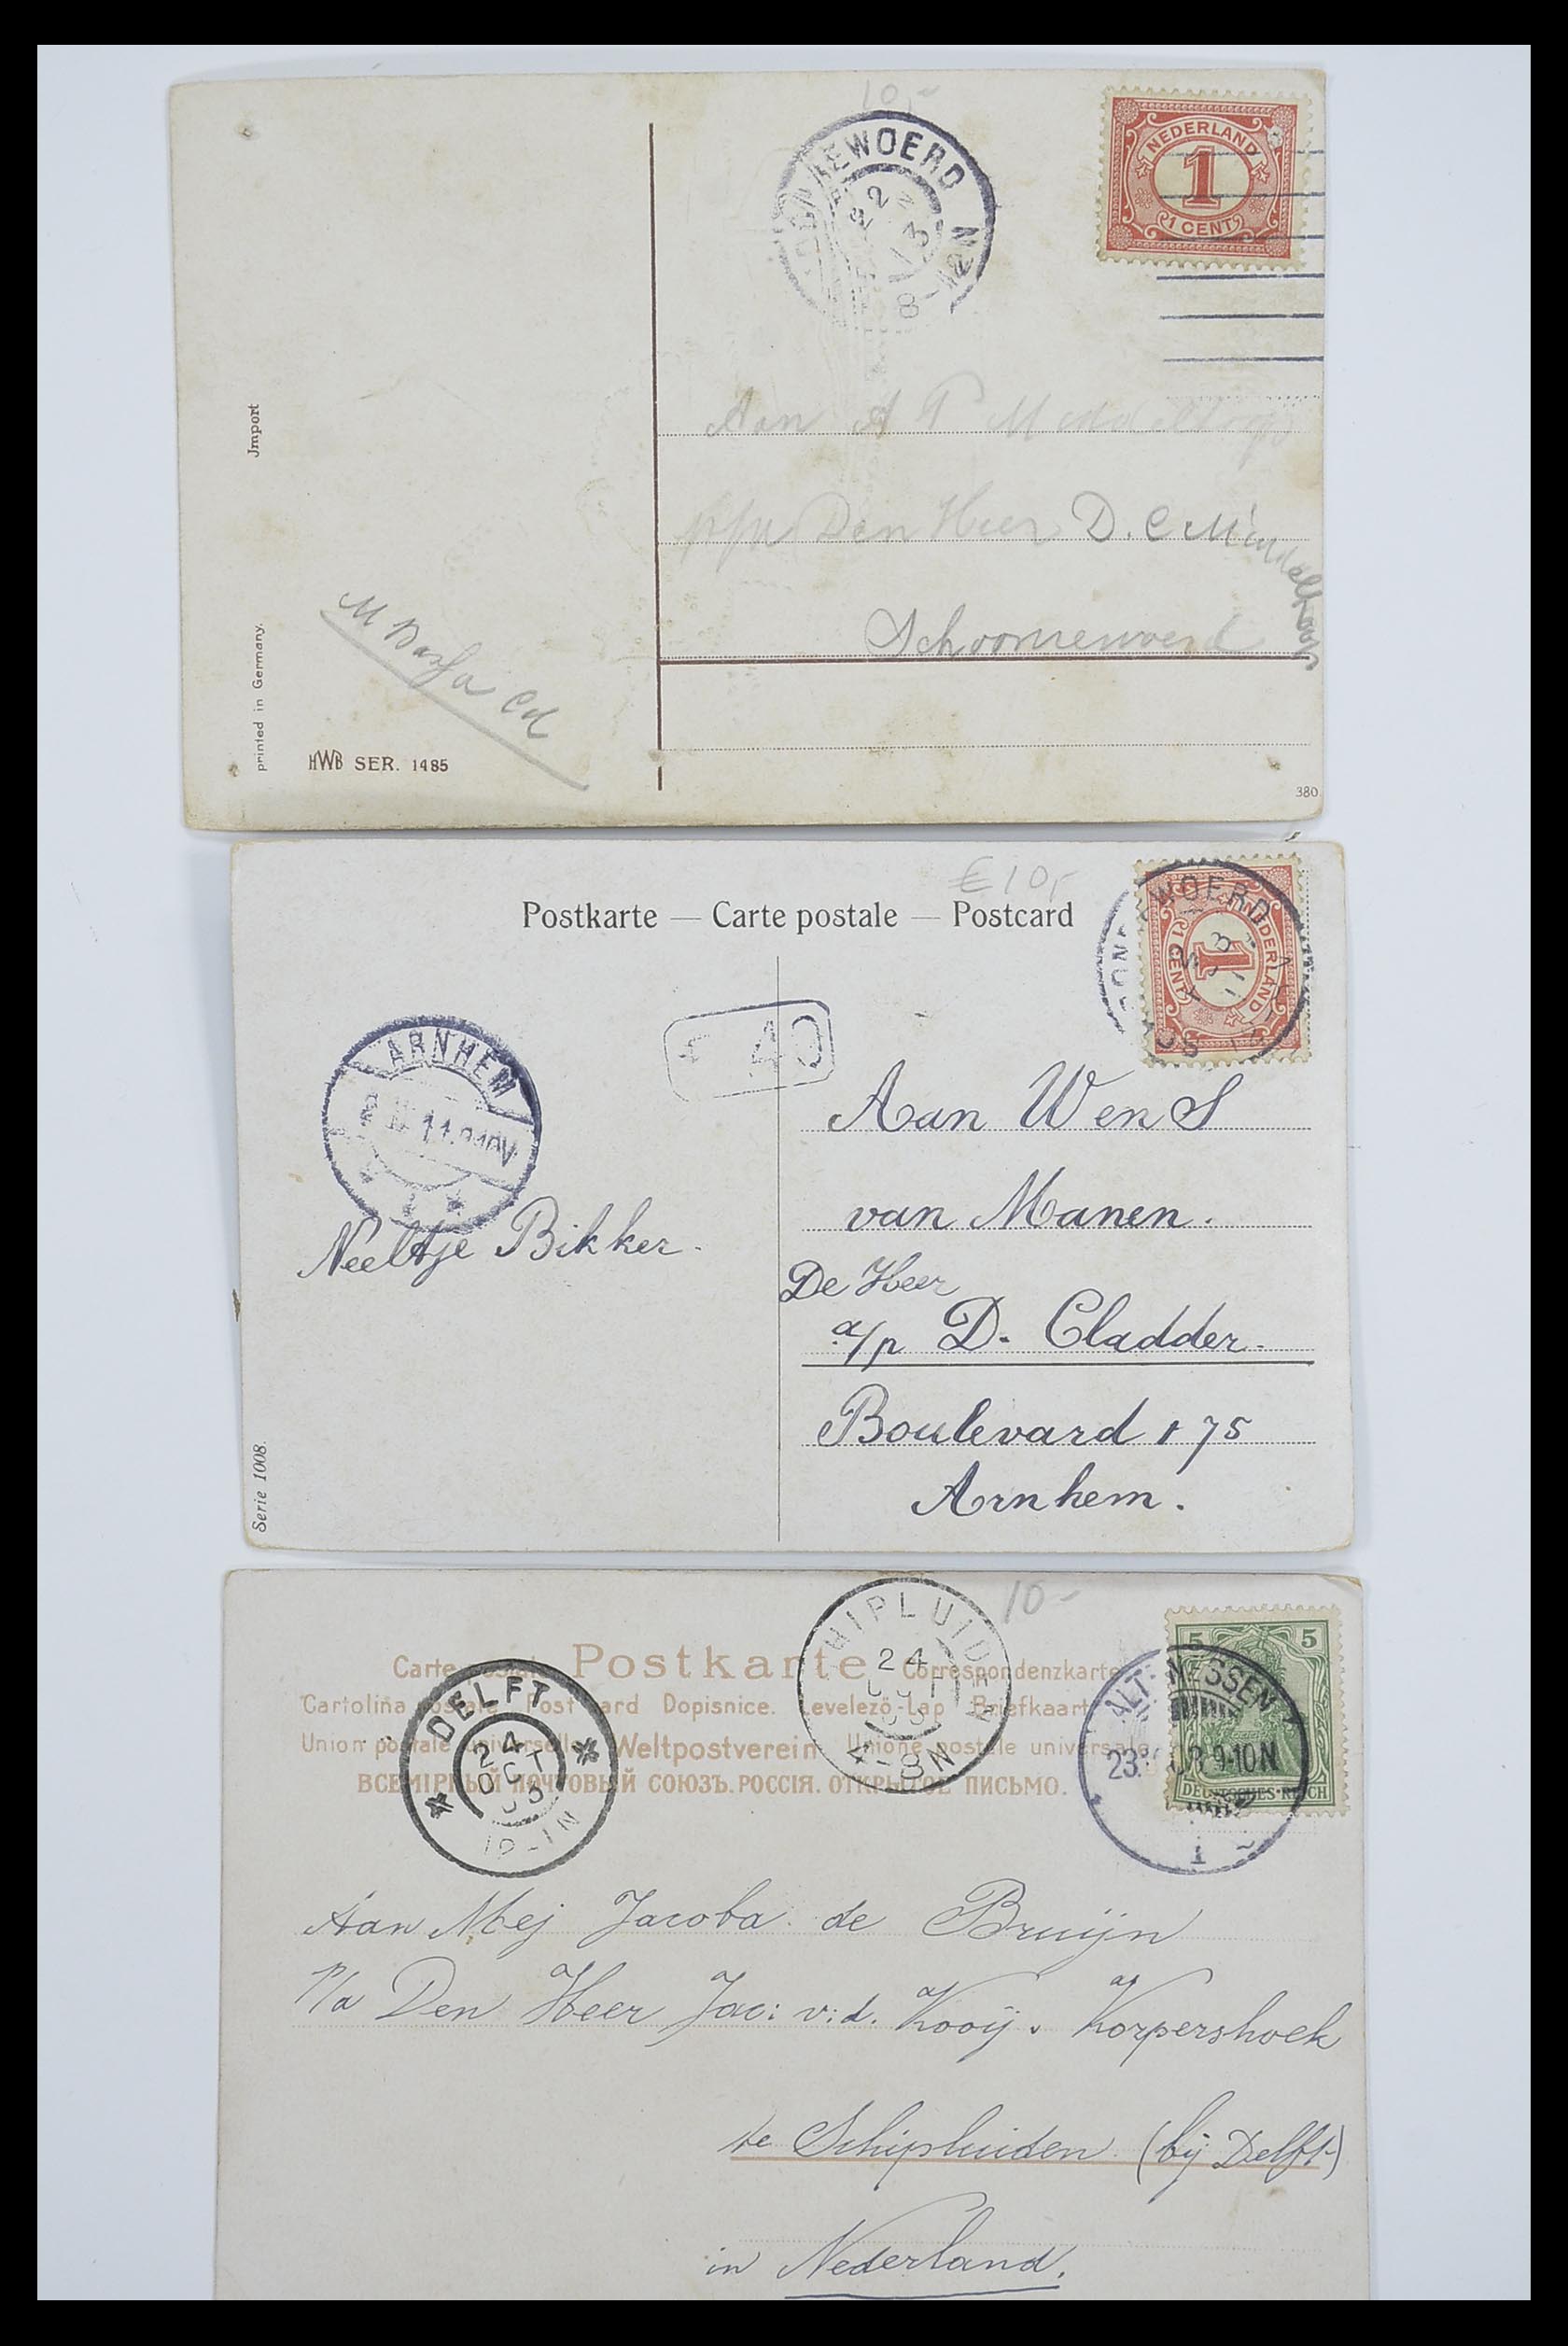 10,-
NEWOERD
22
13
8-12N
NEDERLAND
1
1 CENT
Aan A P
p/a Den Heer D. C Middelkoop
Schoonrewoerd
Jmport
printed in Germany.
M
HWB SER. 1485
380
€10,-
Postkarte — Carte postale — Postcard
WOERD
NEDERLAND
1
1 CENT
40
ARNHEM
Aan WenS
van Manen.
Neeltje Bikker.
De Heer
a/p D. Cladder.
Boulevard 175
Arnhem.
Serie 1008.
10-
HIPLUID
24
4-8N
Carte postale Postkarte Correspondenzkarte
Cartolina postale Post card Dopisnice. Levelező-Lap Briefkaart
Union postale universelle Weltpostverein Unione postale universale
ВСЕМІРНЫЙ ПОЧТОВЫЙ СОЮЗЪ. РОССІЯ. ОТКРЫТОЕ ПИСЬМО.
DELFT
24
OCT
03
12-1N
5 5
DEUTSCHES REICH
ALT-NESSEN
23. 03 9-10N
1
Aan Mej Jacoba de Bruijn
p/a Den Heer Jac: v:d. Kooij. Korpershoek
te Schipluiden (bij Delft)
in Nederland.